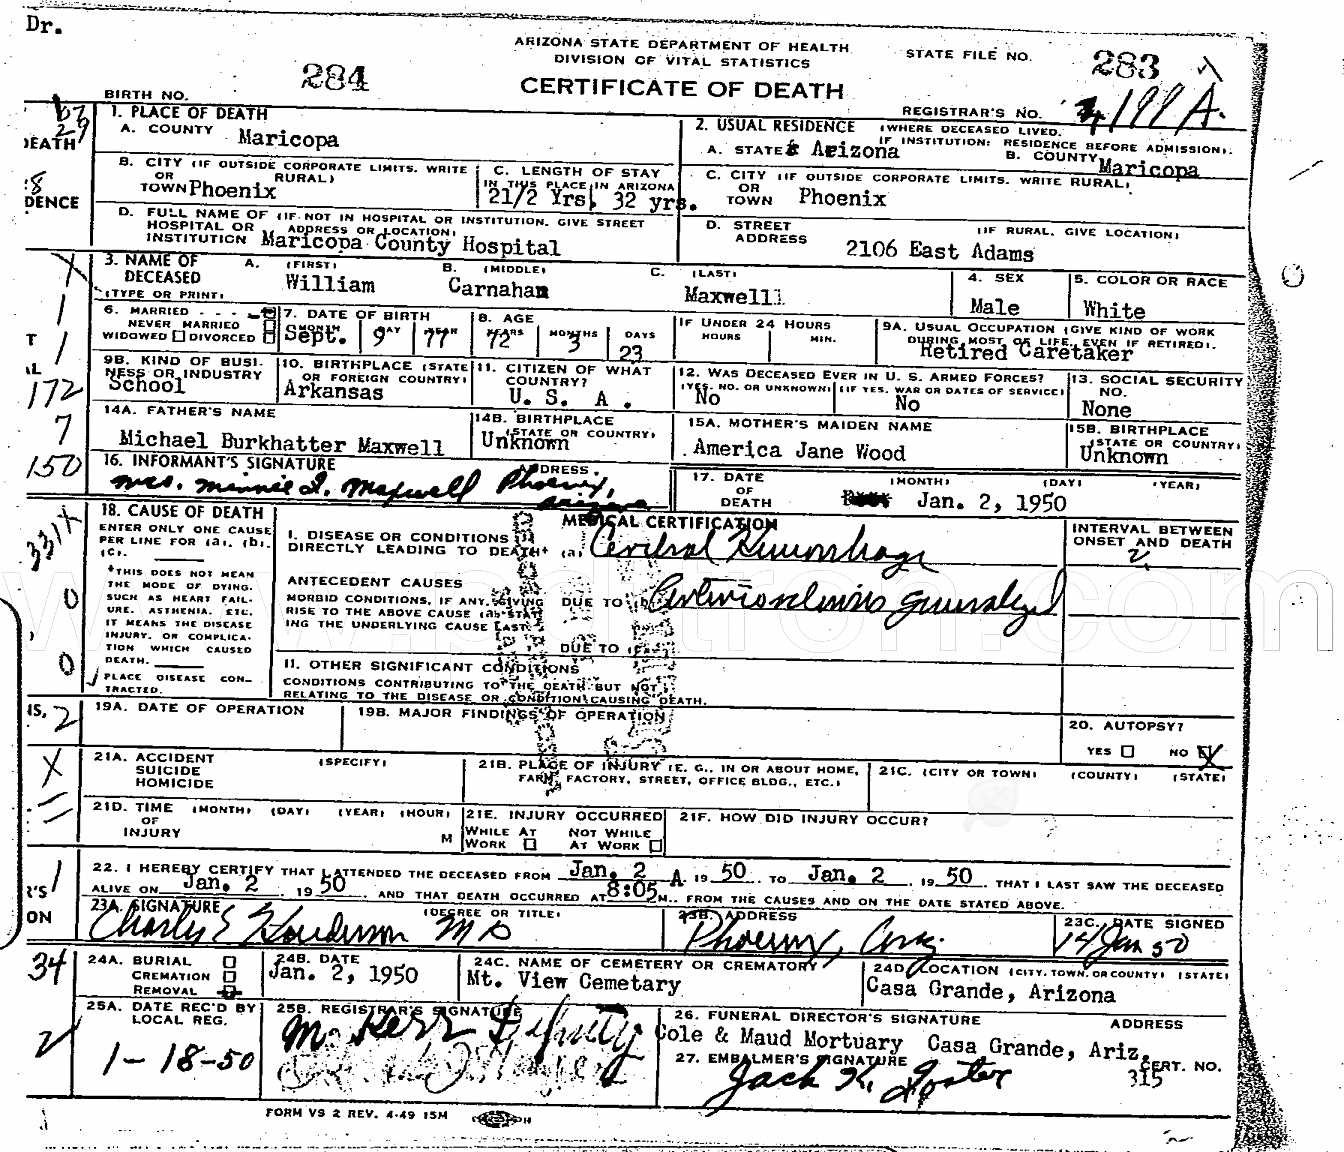 Dr.
ARIZONA STATE DEPARTMENT OF HEALTH
DIVISION OF VITAL STATISTICS
STATE FILE NO. 283
284
CERTIFICATE OF DEATH
BIRTH NO.
REGISTRAR'S NO. 199 A.
1. PLACE OF DEATH
A. COUNTY Maricopa
2. USUAL RESIDENCE (WHERE DECEASED LIVED.
IF INSTITUTION: RESIDENCE BEFORE ADMISSION).
A. STATE Arizona B. COUNTY Maricopa
DEATH
B. CITY (IF OUTSIDE CORPORATE LIMITS, WRITE
OR RURAL)
TOWN Phoenix
C. LENGTH OF STAY
IN THIS PLACE IN ARIZONA
21/2 Yrs. 32 yrs.
C. CITY (IF OUTSIDE CORPORATE LIMITS, WRITE RURAL)
OR
TOWN Phoenix
DENCE
D. FULL NAME OF (IF NOT IN HOSPITAL OR INSTITUTION, GIVE STREET
HOSPITAL OR ADDRESS OR LOCATION)
INSTITUTION Maricopa County Hospital
D. STREET (IF RURAL, GIVE LOCATION)
ADDRESS 2106 East Adams
3. NAME OF DECEASED
(TYPE OR PRINT)
A. (FIRST) William
B. (MIDDLE) Carnahan
C. (LAST) Maxwell
4. SEX
Male
5. COLOR OR RACE
White
6. MARRIED
NEVER MARRIED
WIDOWED DIVORCED
7. DATE OF BIRTH
MONTH DAY YEAR
Sept. 9 77
8. AGE
YEARS MONTHS DAYS
72 3 23
IF UNDER 24 HOURS
HOURS MIN.
9A. USUAL OCCUPATION (GIVE KIND OF WORK
DURING MOST OF LIFE, EVEN IF RETIRED).
Retired Caretaker
9B. KIND OF BUSI-
NESS OR INDUSTRY
School
10. BIRTHPLACE (STATE
OR FOREIGN COUNTRY)
Arkansas
11. CITIZEN OF WHAT
COUNTRY?
U. S. A.
12. WAS DECEASED EVER IN U. S. ARMED FORCES?
(YES, NO, OR UNKNOWN) (IF YES, WAR OR DATES OF SERVICE)
No No
13. SOCIAL SECURITY
NO.
None
172
14A. FATHER'S NAME
Michael Burkhatter Maxwell
14B. BIRTHPLACE
(STATE OR COUNTRY)
Unknown
15A. MOTHER'S MAIDEN NAME
America Jane Wood
15B. BIRTHPLACE
(STATE OR COUNTRY)
Unknown
7
150
16. INFORMANT'S SIGNATURE ADDRESS
Mrs. Minnie I. Maxwell Phoenix, Arizona
17. DATE
OF
DEATH
(MONTH) (DAY) (YEAR)
Jan. 2, 1950
331X
18. CAUSE OF DEATH
ENTER ONLY ONE CAUSE
PER LINE FOR (a), (b),
(c).
*THIS DOES NOT MEAN
THE MODE OF DYING,
SUCH AS HEART FAIL-
URE, ASTHENIA, ETC.
IT MEANS THE DISEASE
INJURY, OR COMPLICA-
TION WHICH CAUSED
DEATH.
PLACE DISEASE CON-
TRACTED.
MEDICAL CERTIFICATION
I. DISEASE OR CONDITIONS
DIRECTLY LEADING TO DEATH* (a) Cerebral Hemorrhage
INTERVAL BETWEEN
ONSET AND DEATH
ANTECEDENT CAUSES
MORBID CONDITIONS, IF ANY, GIVING
RISE TO THE ABOVE CAUSE (a) STAT-
ING THE UNDERLYING CAUSE LAST.
DUE TO (b) Arteriosclerosis Generalized
DUE TO (c)
II. OTHER SIGNIFICANT CONDITIONS
CONDITIONS CONTRIBUTING TO THE DEATH BUT NOT
RELATING TO THE DISEASE OR CONDITION CAUSING DEATH.
0
0
www.adhtron.com
2
19A. DATE OF OPERATION
19B. MAJOR FINDINGS OF OPERATION
20. AUTOPSY?
YES NO X
X
21A. ACCIDENT (SPECIFY)
SUICIDE
HOMICIDE
21B. PLACE OF INJURY (E. G., IN OR ABOUT HOME,
FARM, FACTORY, STREET, OFFICE BLDG., ETC.)
21C. (CITY OR TOWN) (COUNTY) (STATE)
21D. TIME (MONTH) (DAY) (YEAR) (HOUR)
OF
INJURY M
21E. INJURY OCCURRED
WHILE AT NOT WHILE
WORK AT WORK
21F. HOW DID INJURY OCCUR?
22. I HEREBY CERTIFY THAT I ATTENDED THE DECEASED FROM Jan. 2 19 50 TO Jan. 2 19 50. THAT I LAST SAW THE DECEASED
ALIVE ON Jan. 2 19 50 AND THAT DEATH OCCURRED AT 8:05 A M., FROM THE CAUSES AND ON THE DATE STATED ABOVE.
R'S
ON
23A. SIGNATURE (DEGREE OR TITLE)
Charles E Henderson M D
23B. ADDRESS
Phoenix, Ariz
23C. DATE SIGNED
12 Jan 50
34
24A. BURIAL
CREMATION
REMOVAL
24B. DATE
Jan. 2, 1950
24C. NAME OF CEMETERY OR CREMATORY
Mt. View Cemetary
24D. LOCATION (CITY, TOWN, OR COUNTY) (STATE)
Casa Grande, Arizona
25A. DATE REC'D BY
LOCAL REG.
1-18-50
25B. REGISTRAR'S SIGNATURE
M. Kerr Deputy
26. FUNERAL DIRECTOR'S SIGNATURE ADDRESS
Cole & Maud Mortuary Casa Grande, Ariz.
27. EMBALMER'S SIGNATURE CERT. NO.
Jack K. Foster 315
FORM VS 2 REV. 4-49 15M